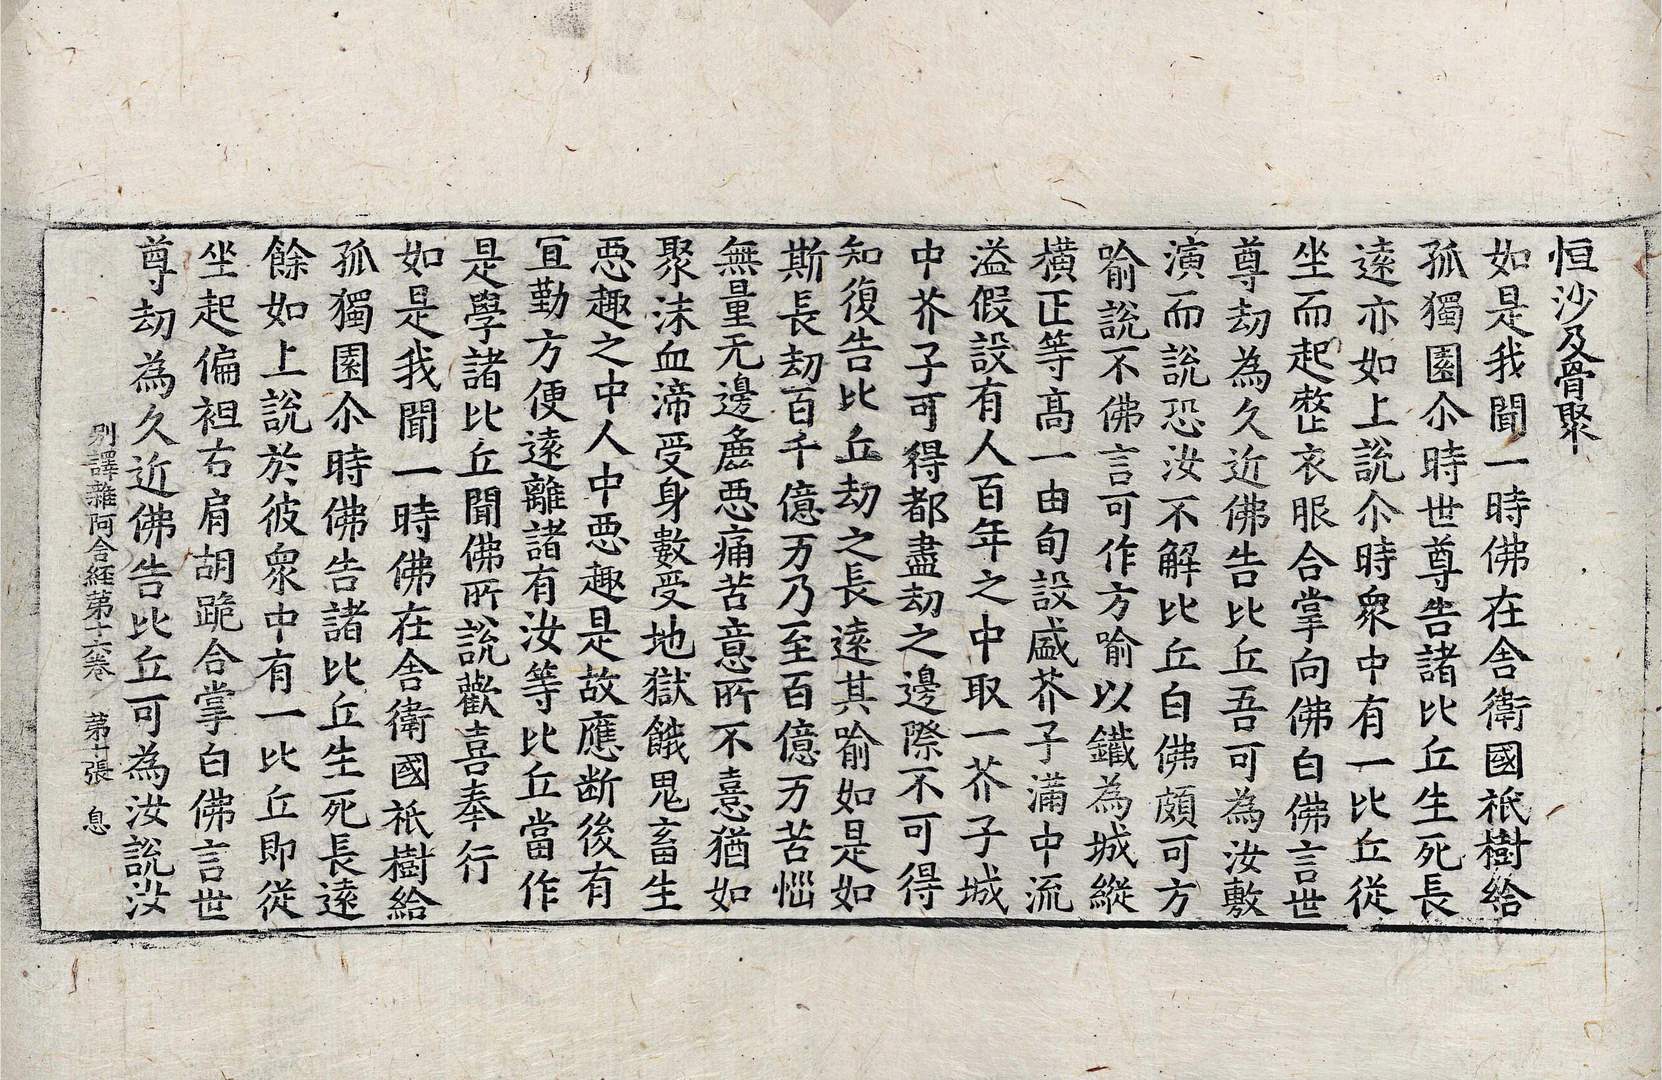 恒沙及骨聚
如是我聞一時佛在舍衛國祇樹給
孤獨園尒時世尊告諸比丘生死長
遠亦如上說尒時衆中有一比丘從
坐而起整衣服合掌向佛白佛言世
尊劫為久近佛告比丘吾可為汝敷
演而說恐汝不解比丘白佛頗可方
喻說不佛言可作方喻以鐵為城縱
橫正等高一由旬設盛芥子滿中流
溢假設有人百年之中取一芥子城
中芥子可得都盡劫之邊際不可得
知復告比丘劫之長遠其喻如是如
斯長劫百千億万乃至百億万苦惱
無量无邊麁惡痛苦意所不憙猶如
聚沫血渧受身數受地獄餓鬼畜生
惡趣之中人中惡趣是故應断後有
冝勤方便遠離諸有汝等比丘當作
是學諸比丘聞佛所說歡喜奉行
如是我聞一時佛在舍衛國祇樹給
孤獨園尒時佛告諸比丘生死長遠
餘如上說於彼衆中有一比丘即從
坐起偏袒右肩胡跪合掌白佛言世
尊劫為久近佛告比丘可為汝說汝
別譯雜阿含経第十六卷 第七張 息